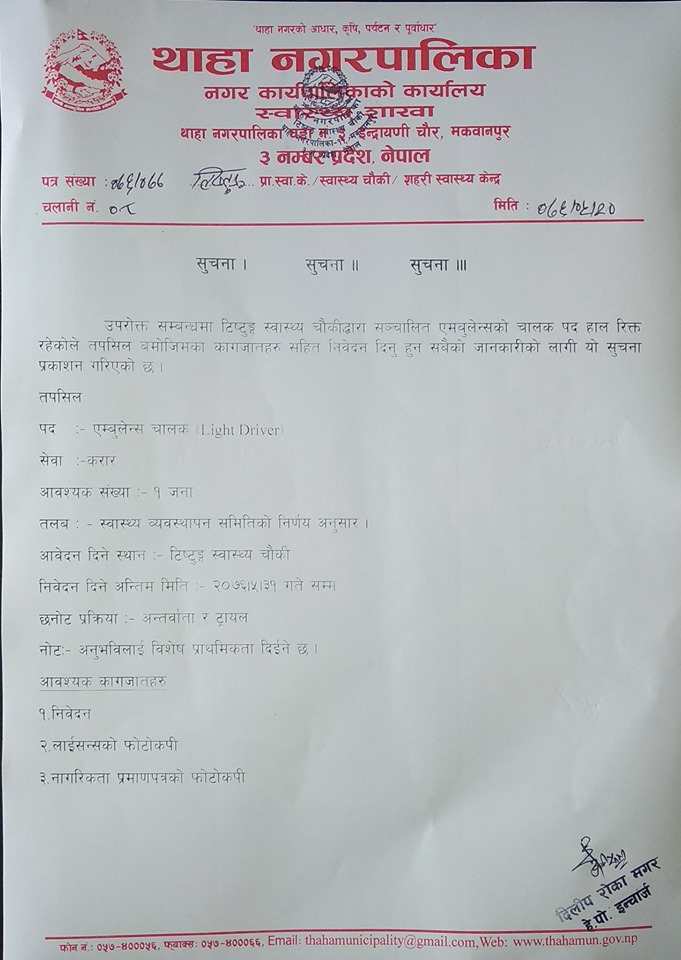 "थाहा नगरको आधार, कृषि, पर्यटन र पूर्वाधार"
थाहा नगरपालिका
नगर कार्यपालिकाको कार्यालय
स्वास्थ्य शाखा
थाहा नगरपालिका वडा नं. ३, इन्द्रायणी चौर, मकवानपुर
३ नम्बर प्रदेश, नेपाल
पत्र संख्या : ०७६/०७७ प्रा.स्वा.के./स्वास्थ्य चौकी/ शहरी स्वास्थ्य केन्द्र
चलानी नं. ०८ मिति : ०७६/०५/२०
सुचना । सुचना ॥ सुचना ॥।
उपरोक्त सम्बन्धमा टिष्टुङ्ग स्वास्थ्य चौकीद्वारा सञ्चालित एमबुलेन्सको चालक पद हाल रिक्त
रहेकोले तपसिल बमोजिमका कागजातहरु सहित निवेदन दिनु हुन सबैको जानकारीको लागी यो सुचना
प्रकाशन गरिएको छ ।
तपसिल
पद :- एम्बुलेन्स चालक (Light Driver)
सेवा :-करार
आवश्यक संख्या :- १ जना
तलब : - स्वास्थ्य व्यवस्थापन समितिको निर्णय अनुसार ।
आवेदन दिने स्थान :- टिष्टुङ्ग स्वास्थ्य चौकी
निवेदन दिने अन्तिम मिति :- २०७६।५।३१ गते सम्म
छनोट प्रक्रिया :- अन्तर्वाता र ट्रायल
नोटः- अनुभविलाई विशेष प्राथमिकता दिईने छ ।
आवश्यक कागजातहरु
१.निवेदन
२.लाईसन्सको फोटोकपी
३.नागरिकता प्रमाणपत्रको फोटोकपी
दिलीप रोका मगर
हे.पो. इन्चार्ज
फोन नं.: ०५७-४०००५६, फ्याक्स: ०५७-४०००६६, Email: thahamunicipality@gmail.com, Web: www.thahamun.gov.np